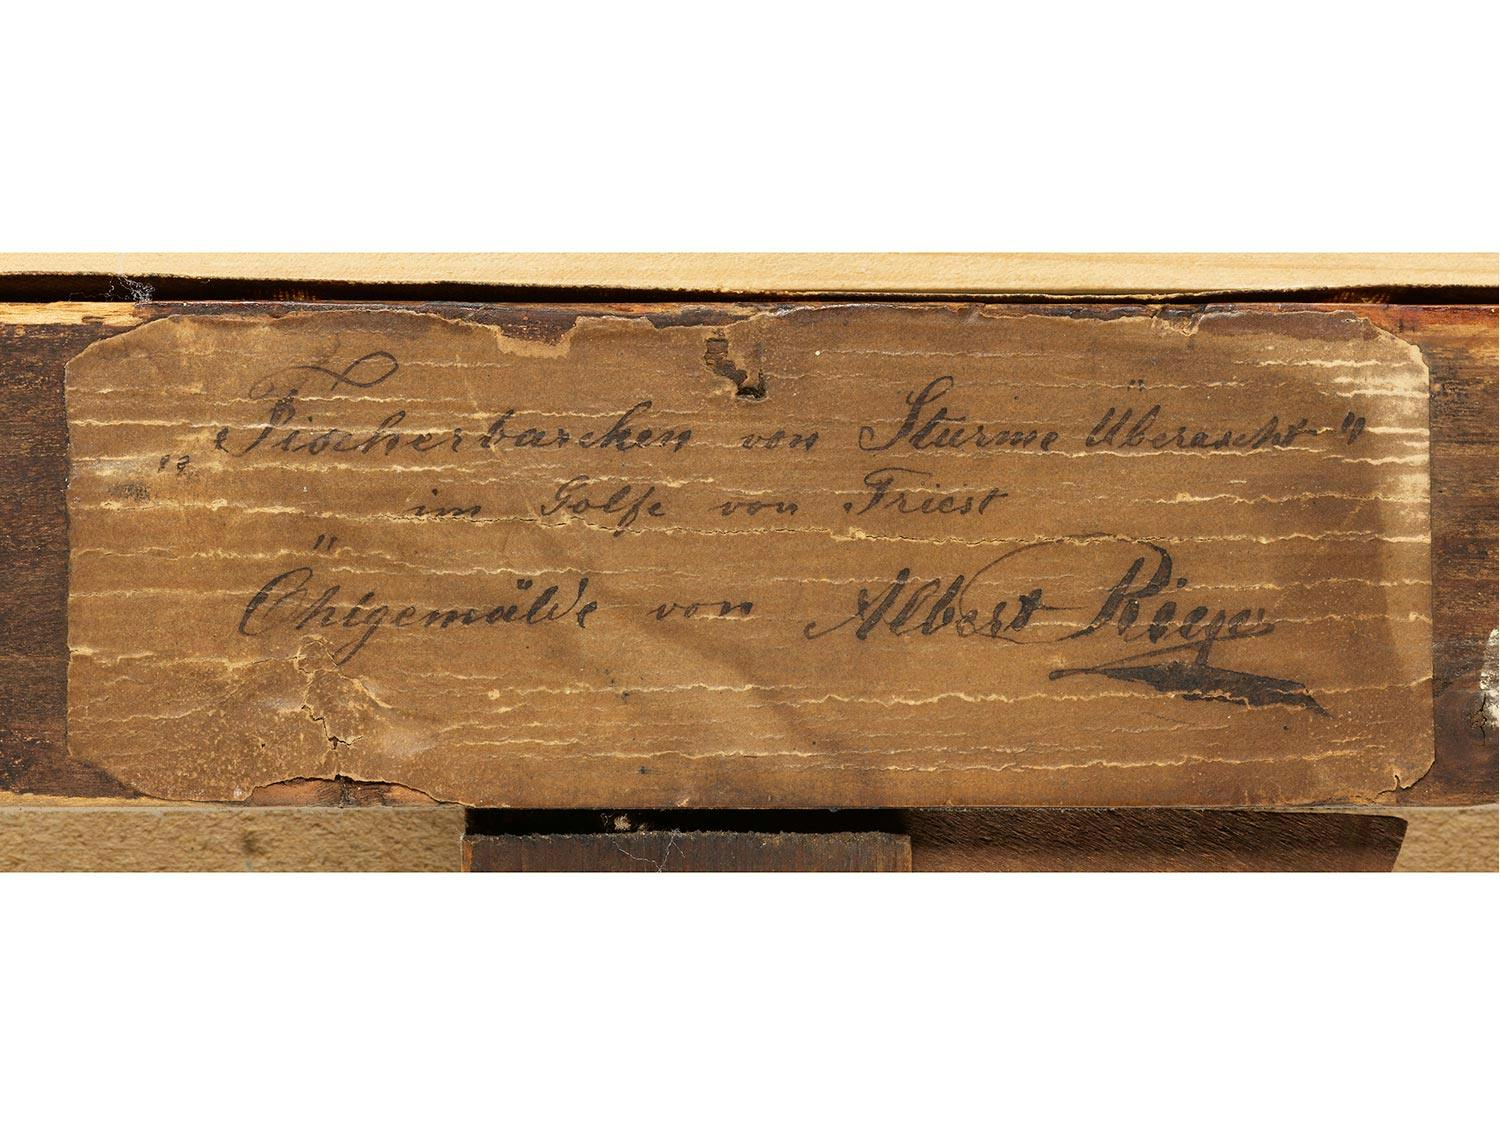 „Fischerbarcken von Sturme Überascht"
im Golfe von Triest
Öhlgemälde von Albert Rieger